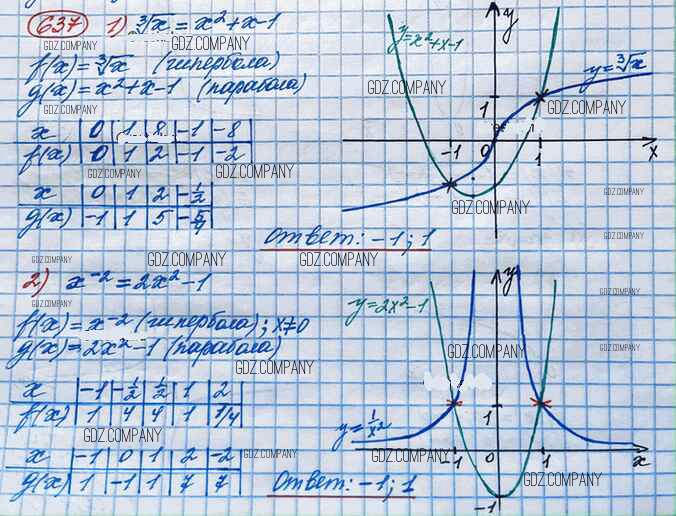 637 1) ∛x = x²+x-1
GDZ.COMPANY GDZ.COMPANY
f(x) = ∛x (гипербола)
g(x) = x²+x-1 (парабола)
GDZ.COMPANY
x | 0 | 1 | 8 | -1 | -8
f(x) | 0 | 1 | 2 | -1 | -2
GDZ.COMPANY
x | 0 | 1 | 2 | -1/2
g(x) | -1 | 1 | 5 | -5/4
GDZ.COMPANY
y=x²+x-1
y
y=∛x
GDZ.COMPANY
1
GDZ.COMPANY
-1 0 1 x
GDZ.COMPANY
GDZ.COMPANY
Ответ: -1; 1
GDZ.COMPANY
GDZ.COMPANY GDZ.COMPANY GDZ.COMPANY
2) x⁻² = 2x²-1
GDZ.COMPANY
f(x) = x⁻² (гипербола); x≠0
g(x) = 2x²-1 (парабола)
GDZ.COMPANY
x | -1 | -1/2 | 1/2 | 1 | 2
f(x) | 1 | 4 | 4 | 1 | 1/4
GDZ.COMPANY
x | -1 | 0 | 1 | 2 | -2
g(x) | 1 | -1 | 1 | 7 | 7
GDZ.COMPANY
y
y=2x²-1
GDZ.COMPANY
GDZ.COMPANY GDZ.COMPANY
1
y=1/x²
GDZ.COMPANY GDZ.COMPANY
-1 0 1 x
-1
Ответ: -1; 1